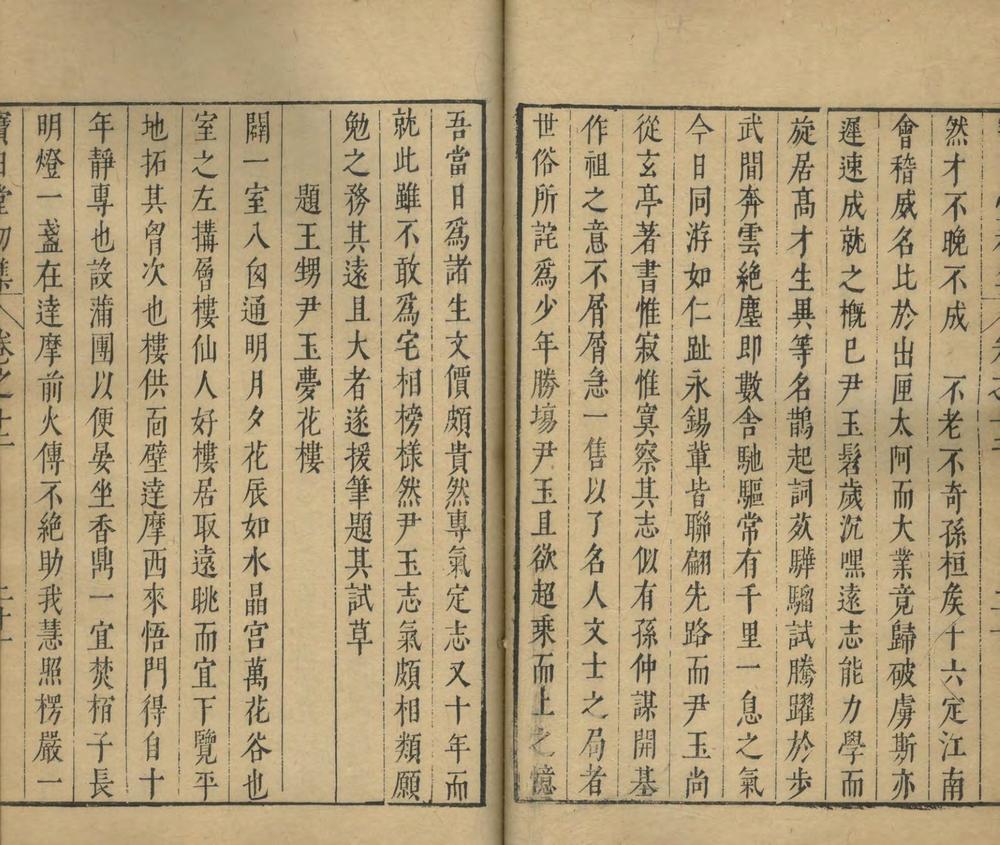 然才不晚不成　不老不奇孫桓矦十六定江南
會稽威名比於出匣太阿而大業竟歸破虜斯亦
遲速成就之概已尹玉髫歲沉嘿遠志能力學而
旋居高才生異等名鵲起詞苑驊騮試騰躍於步
武間奔雲絶塵即數舍馳驅常有千里一息之氣
今日同游如仁趾永錫軰皆聯翩先路而尹玉尚
從玄亭著書惟寂惟寞察其志似有孫仲謀開基
作祖之意不屑屑急一售以了名人文士之局者
世俗所詫爲少年勝塲尹玉且欲超乘而上之憶
吾當日爲諸生文價頗貴然專氣定志又十年而
就此雖不敢爲宅相榜樣然尹玉志氣頗相類願
勉之務其遠且大者遂援筆題其試草
題王甥尹玉夢花樓
闢一室八囪通明月夕花辰如水晶宫萬花谷也
室之左搆層樓仙人好樓居取遠眺而宜下覽平
地拓其胷次也樓供面壁逹摩西來悟門得自十
年靜專也設蒲團以便晏坐香鼎一宜焚栢子長
明燈一盞在逹摩前火傳不絶助我慧照楞嚴一
寶日堂初集 卷之十二